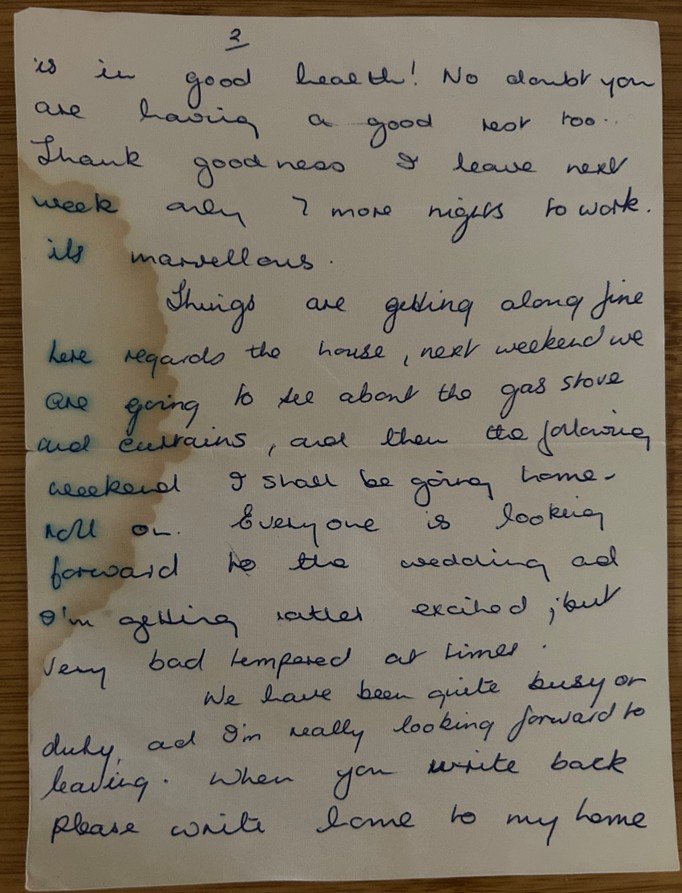 2
is in good health! No doubt you
are having a good rest too..
Thank goodness I leave next
week only 7 more nights to work.
its marvellous.
Things are getting along fine
here regards the house, next weekend we
are going to see about the gas stove
and curtains, and then the following
weekend I shall be going home -
roll on. Everyone is looking
forward to the wedding ad
I'm getting rather excited; but
very bad tempered at times.
We have been quite busy on
duty, ad I'm really looking forward to
leaving. When you write back
please write home to my home